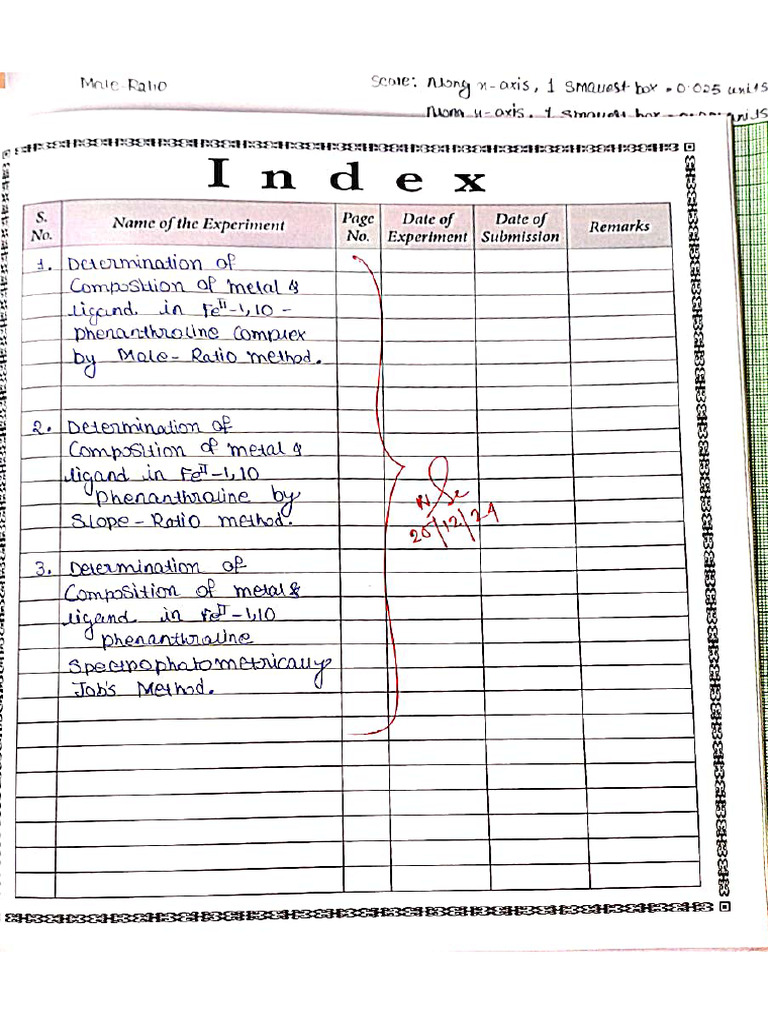 Mole-Ratio
Scale: Along x-axis, 1 smallest box = 0.025 units
Along x-axis, 1 smallest box = units
Index
S. No.
Name of the Experiment
Page No.
Date of Experiment
Date of Submission
Remarks
1. Determination of
Composition of metal &
ligand in Fe^II-1,10-
phenanthroline Complex
by Mole-Ratio method.
2. Determination of
Composition of metal &
ligand in Fe^II-1,10
phenanthroline by
Slope-Ratio method.
3. Determination of
Composition of metal &
ligand in Fe^II-1,10
phenanthroline
Spectrophotometrically
Job's Method.
20/12/24